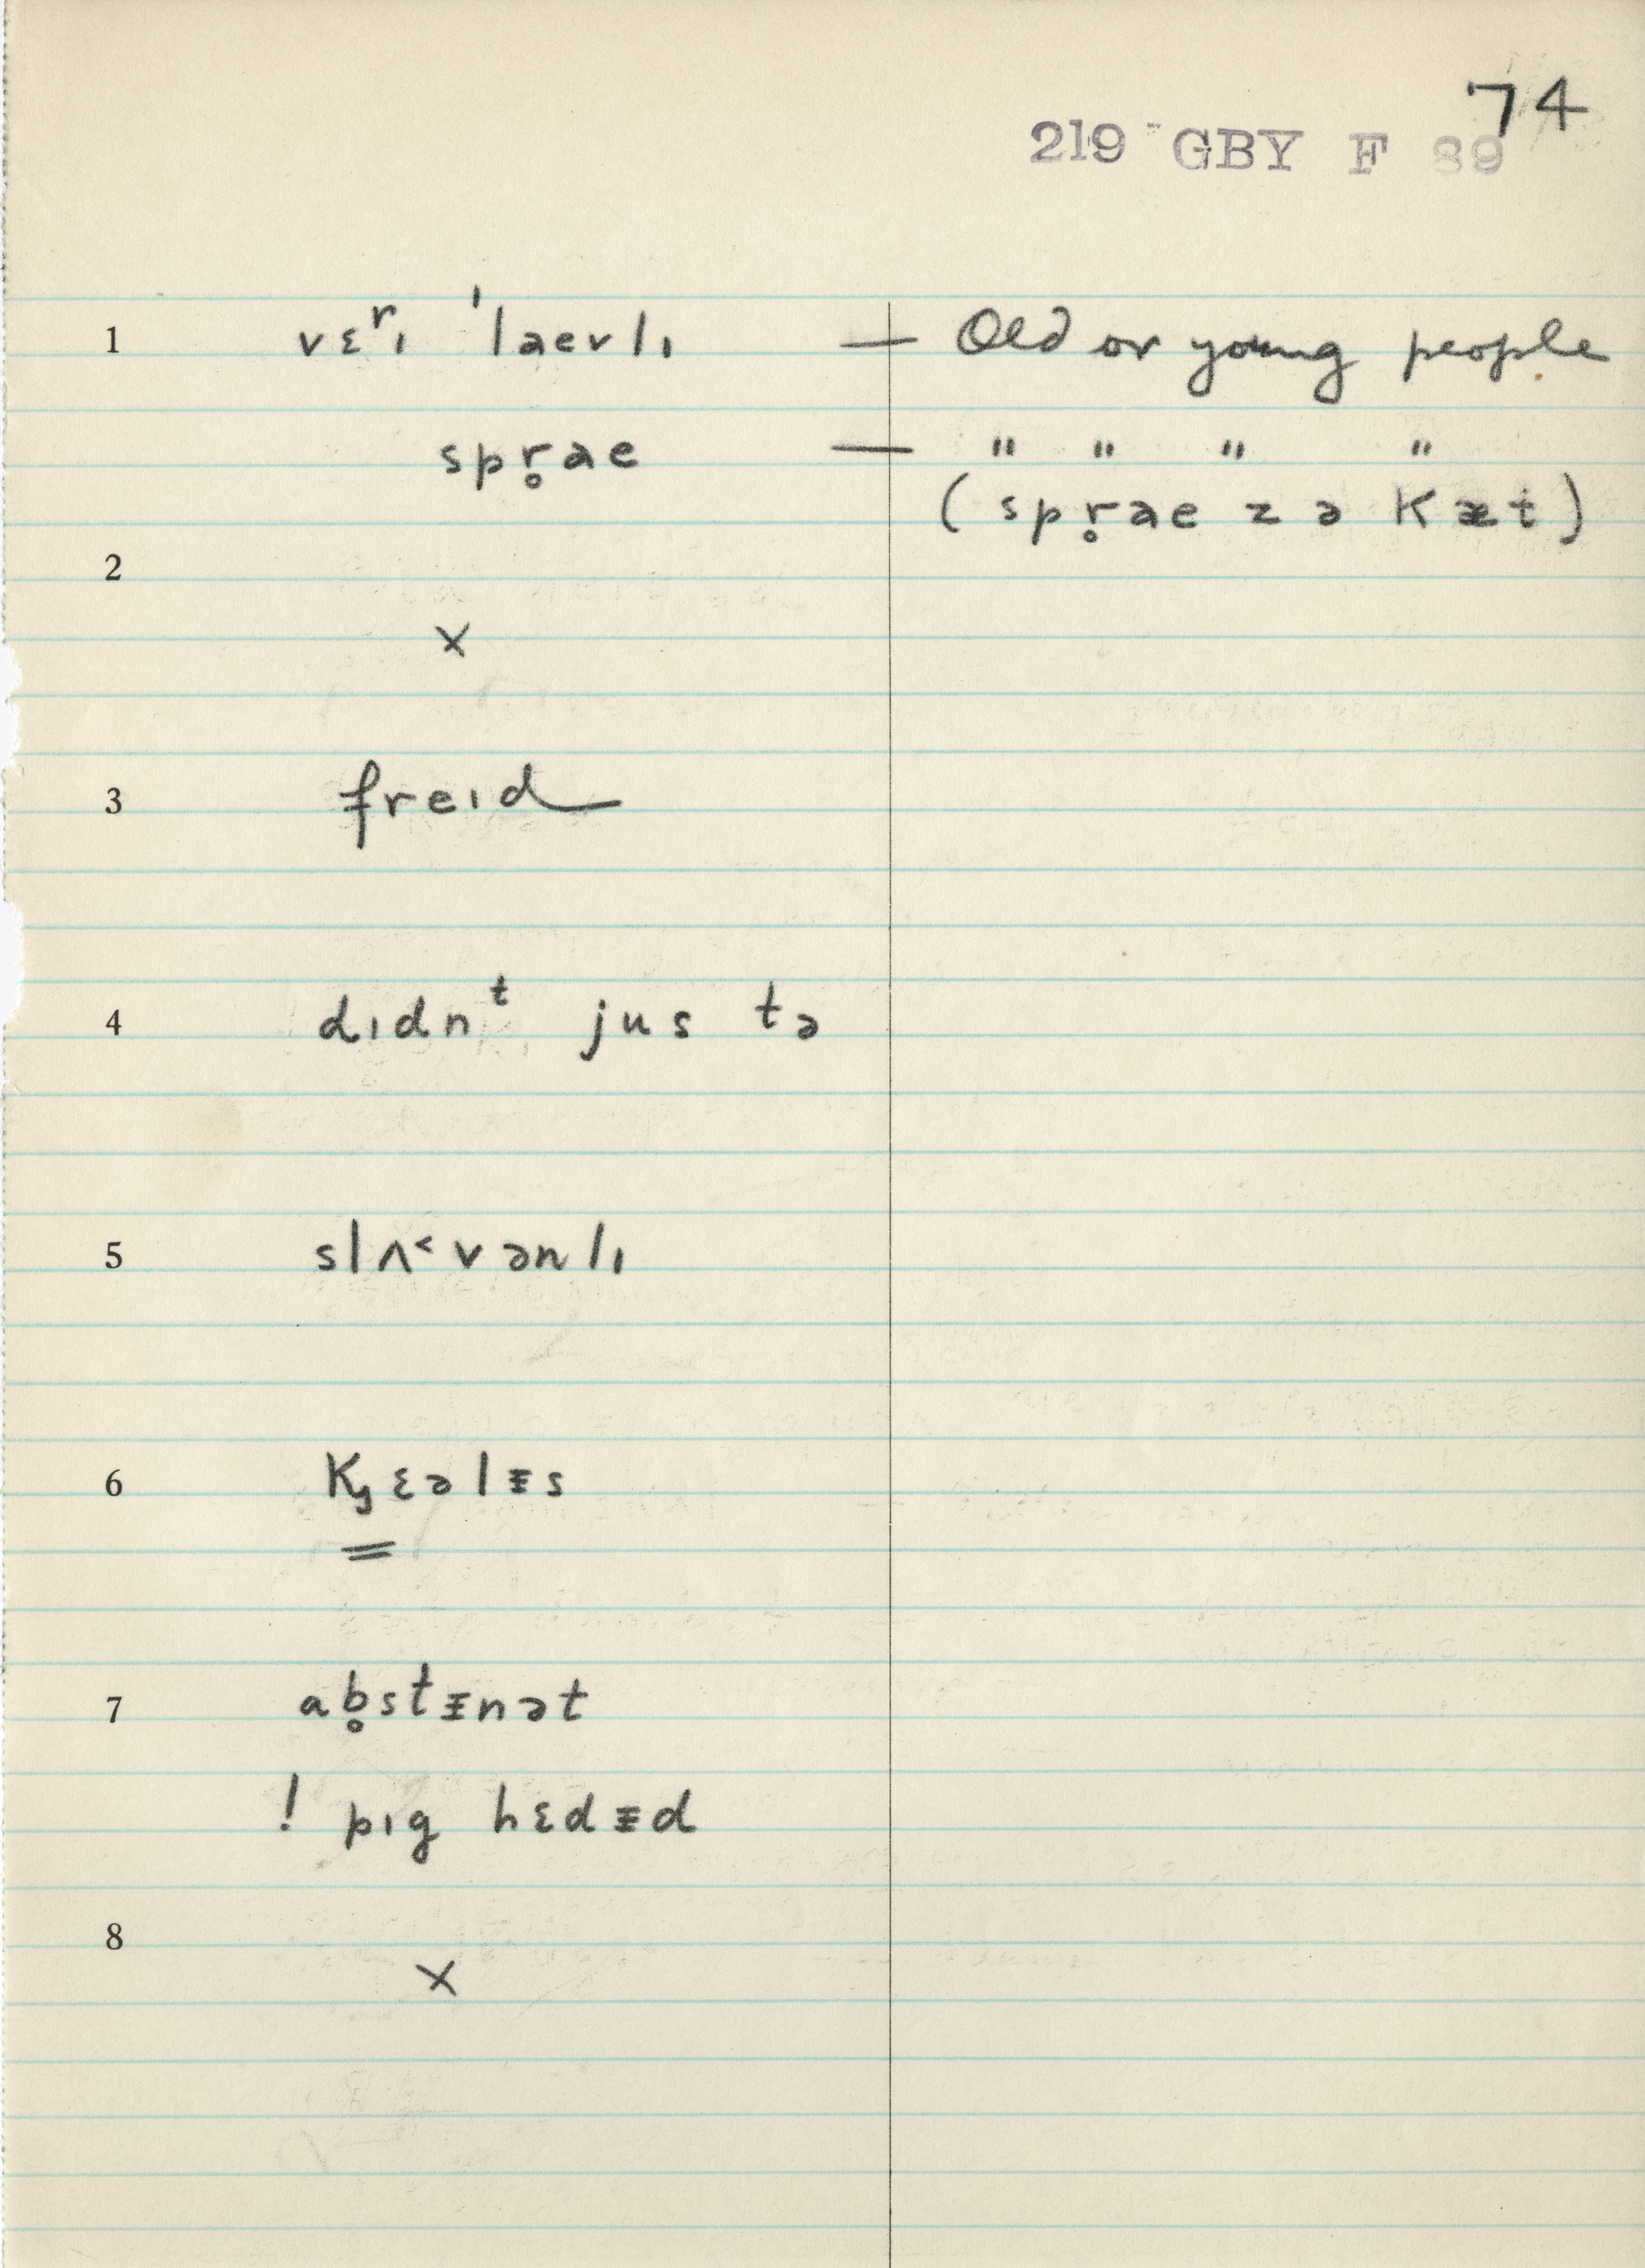 74
219 GBY F 89
1 vɛʳɪ ˈlaevlɪ — Old or young people
spr̥ae — " " " "
(spr̥ae z ə kæt)
2
x
3 freɪd
4 dɪdnᵗ jus tə
5 slʌ˂vənlɪ
6 kʒɛəlᵻs
7 ab̥stᵻnət
! pɪg hɛdᵻd
8
x